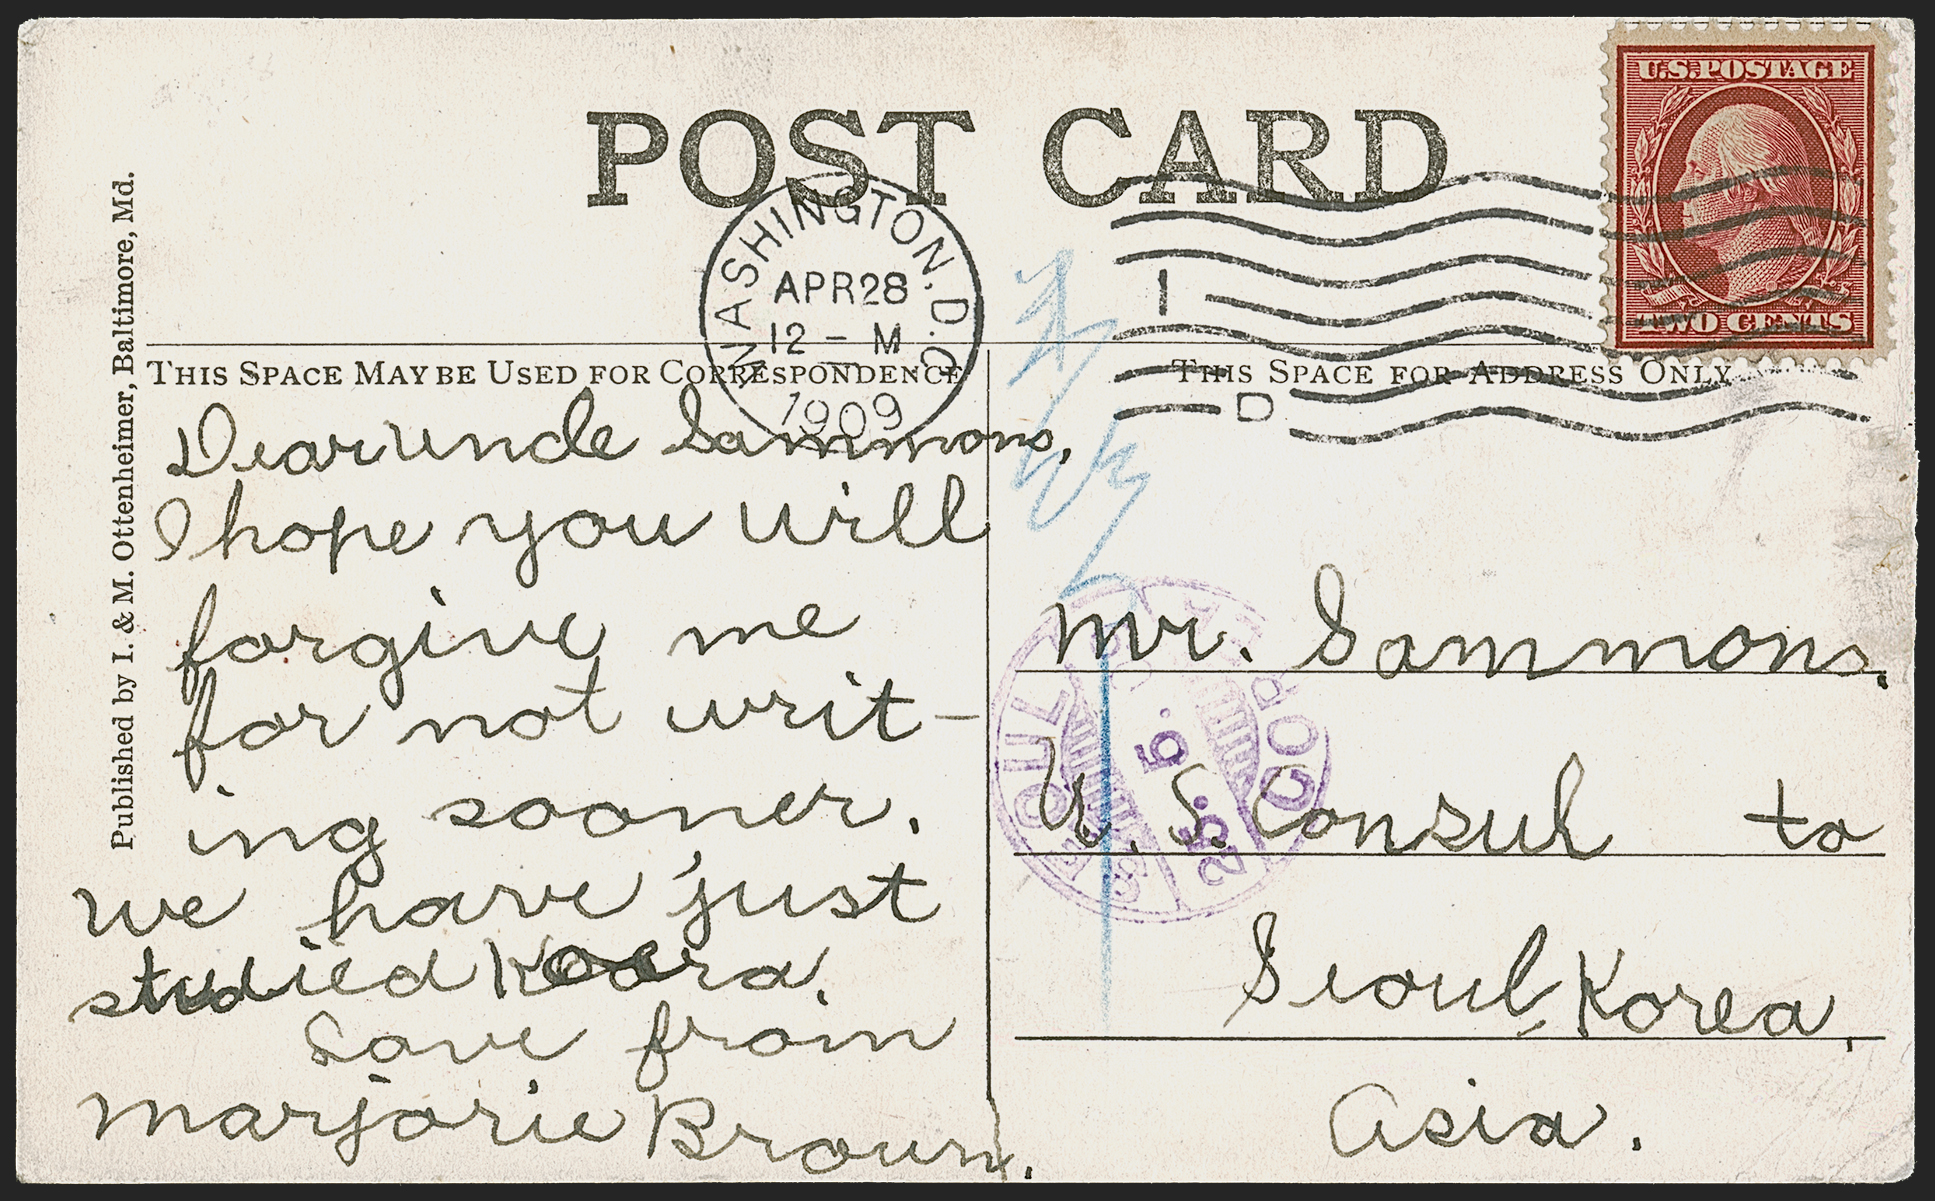 U.S. POSTAGE
TWO CENTS
POST CARD
WASHINGTON, D.C.
APR 28
12 – M
1909
1
D
Published by I. & M. Ottenheimer, Baltimore, Md.
THIS SPACE MAY BE USED FOR CORRESPONDENCE
THIS SPACE FOR ADDRESS ONLY
Dear uncle Sammons,
I hope you will
forgive me
for not writ-
ing sooner.
we have just
studied Korea.
Love from
Marjorie Brown.
Mr. Sammons,
U. S. Consul to
Seoul, Korea,
Asia.
SEOUL
25. 5.